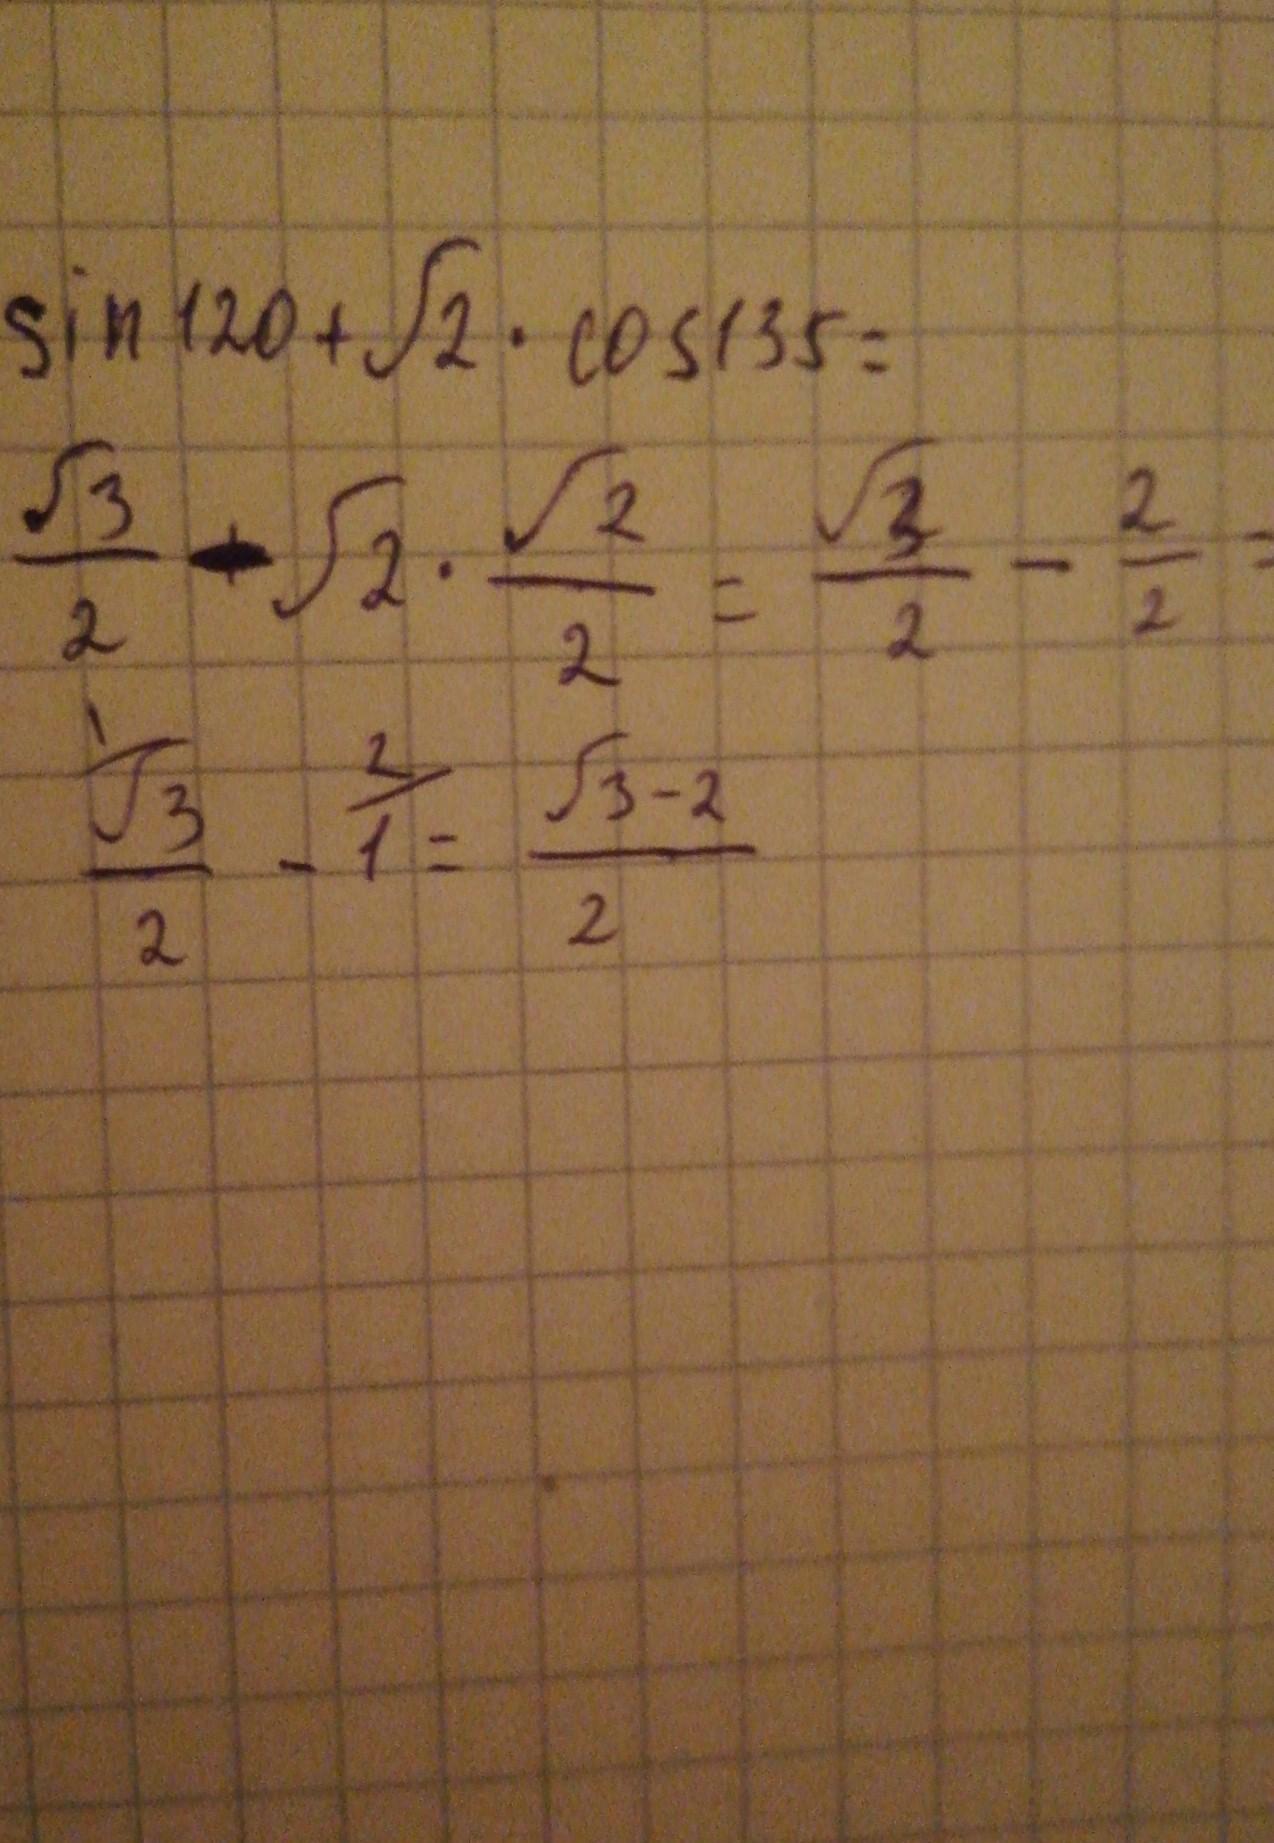 sin120+√2·cos135=
√3/2 - √2·√2/2 = √3/2 - 2/2 =
1 √3/2 - 2/1 = √3-2/2